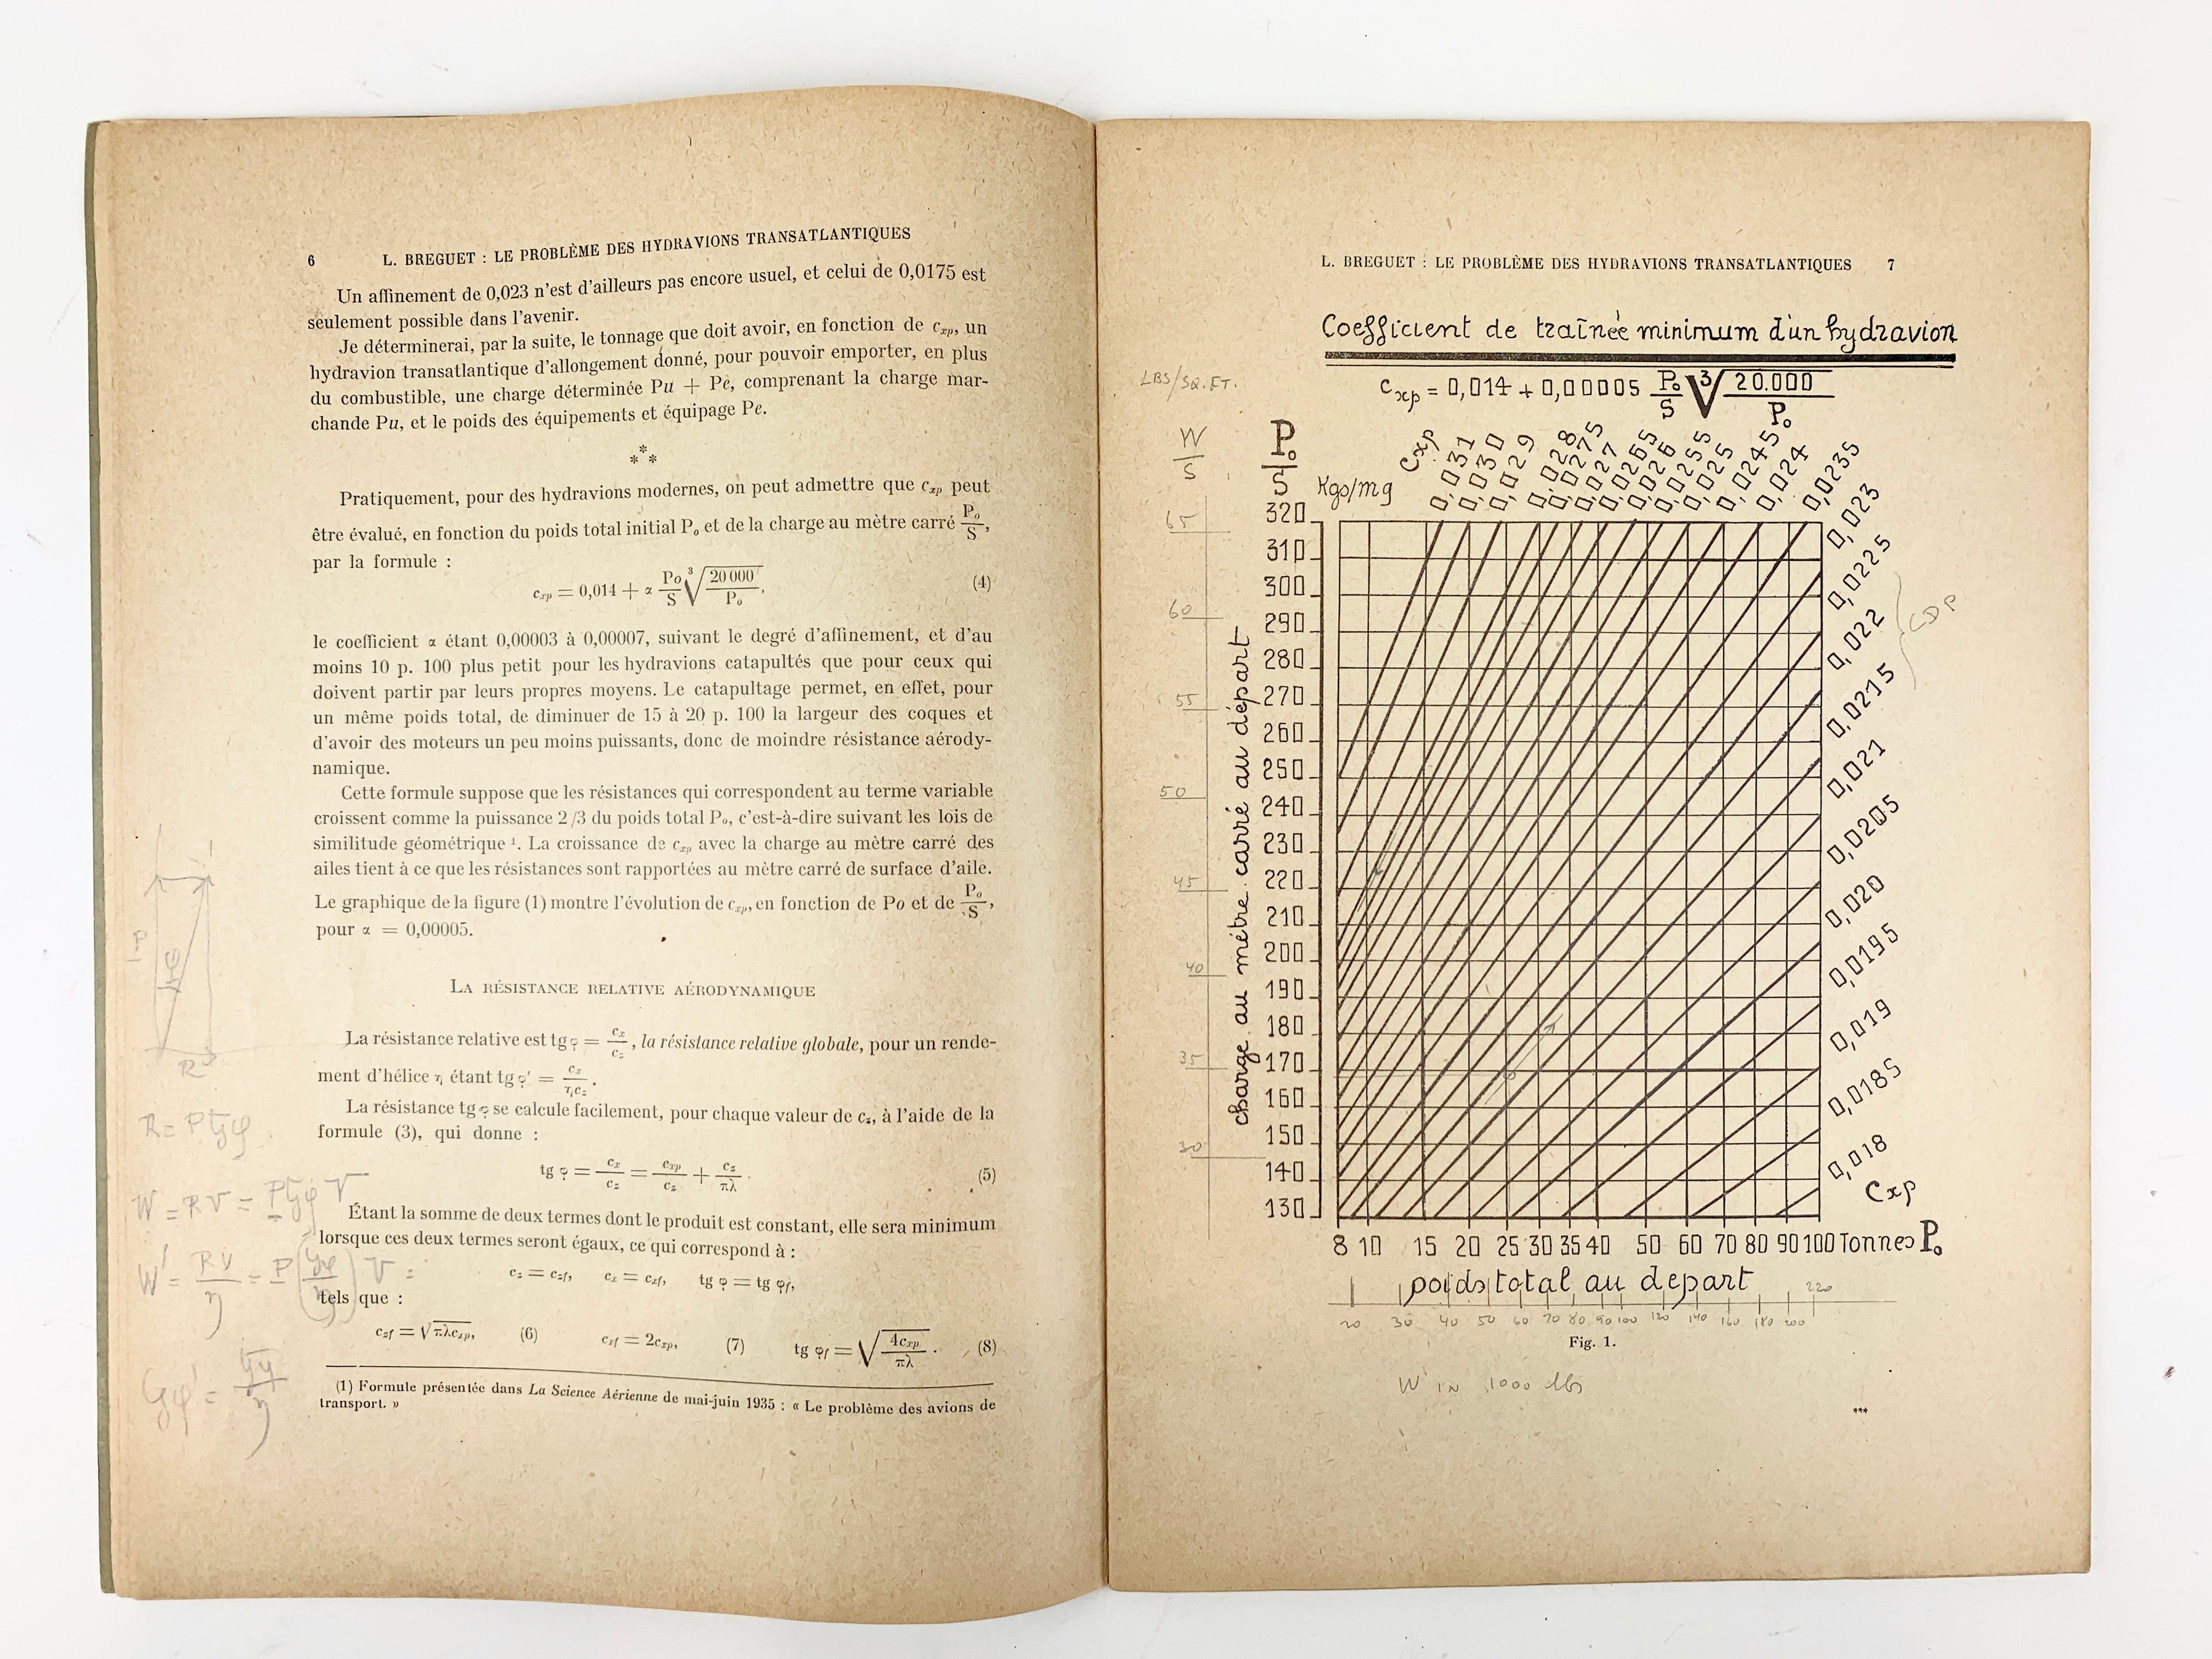 6 L. BREGUET : LE PROBLÈME DES HYDRAVIONS TRANSATLANTIQUES
Un affinement de 0,023 n'est d'ailleurs pas encore usuel, et celui de 0,0175 est
seulement possible dans l'avenir.
Je déterminerai, par la suite, le tonnage que doit avoir, en fonction de cxp, un
hydravion transatlantique d'allongement donné, pour pouvoir emporter, en plus
du combustible, une charge déterminée Pu + Pe, comprenant la charge mar-
chande Pu, et le poids des équipements et équipage Pe.
***
Pratiquement, pour des hydravions modernes, on peut admettre que cxp peut
être évalué, en fonction du poids total initial Po et de la charge au mètre carré Po/S,
par la formule :
cxp = 0,014 + α Po/S ³√(20 000/Po). (4)
le coefficient α étant 0,00003 à 0,00007, suivant le degré d'affinement, et d'au
moins 10 p. 100 plus petit pour les hydravions catapultés que pour ceux qui
doivent partir par leurs propres moyens. Le catapultage permet, en effet, pour
un même poids total, de diminuer de 15 à 20 p. 100 la largeur des coques et
d'avoir des moteurs un peu moins puissants, donc de moindre résistance aérody-
namique.
Cette formule suppose que les résistances qui correspondent au terme variable
croissent comme la puissance 2/3 du poids total Po, c'est-à-dire suivant les lois de
similitude géométrique ¹. La croissance de cxp avec la charge au mètre carré des
ailes tient à ce que les résistances sont rapportées au mètre carré de surface d'aile.
Le graphique de la figure (1) montre l'évolution de cxp, en fonction de Po et de Po/S,
pour α = 0,00005.
LA RÉSISTANCE RELATIVE AÉRODYNAMIQUE
La résistance relative est tg φ = cx/cz, la résistance relative globale, pour un rende-
ment d'hélice η étant tg φ' = cx/ηcz.
La résistance tg φ se calcule facilement, pour chaque valeur de cz, à l'aide de la
formule (3), qui donne :
tg φ = cx/cz = cxp/cz + cz/πλ. (5)
Étant la somme de deux termes dont le produit est constant, elle sera minimum
lorsque ces deux termes seront égaux, ce qui correspond à :
cz = czf, cx = cxf, tg φ = tg φf,
tels que :
czf = √(πλcxp), (6) cxf = 2cxp, (7) tg φf = √(4cxp/πλ). (8)
(1) Formule présentée dans La Science Aérienne de mai-juin 1935 : « Le problème des avions de
transport. »
P
R
R = P tg φ
W = RV = P tg φ V
W' = RV/η = P (tg φ/η) V
L. BREGUET : LE PROBLÈME DES HYDRAVIONS TRANSATLANTIQUES 7
Coefficient de traînée minimum d'un hydravion
cxp = 0,014 + 0,00005 Po/S ³√(20.000/Po)
LBS/SQ.FT.
W/S
Po/S
Kgs/mq
Cxp
0,031
0,030
0,029
0,028
0,0275
0,027
0,0265
0,026
0,0255
0,025
0,0245
0,024
0,0235
0,023
0,0225
0,022
0,0215
0,021
0,0205
0,020
0,0195
0,019
0,0185
0,018
Cxp
CDP
320
310
300
290
280
270
260
250
240
230
220
210
200
190
180
170
160
150
140
130
65
60
55
50
45
40
35
30
charge au mètre carré au départ
8 10 15 20 25 30 35 40 50 60 70 80 90 100 Tonnes Po
poids total au depart
220
20 30 40 50 60 70 80 90 100 120 140 160 180 200
Fig. 1.
W IN 1000 lbs
***